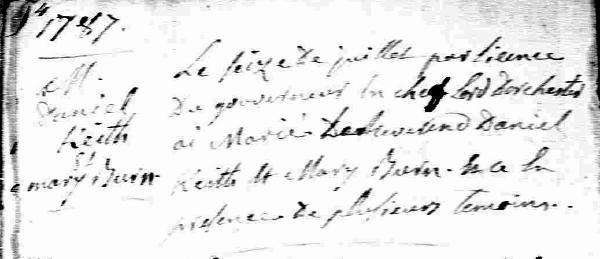 1787.
M.
Daniel
Keith
&
mary Burn
Le seize De juillet par licence
Du gouverneur En chef Lord Dorchester
ai Marié Daniel
Keith et Mary Burn. En
presence De plusieurs temoins.